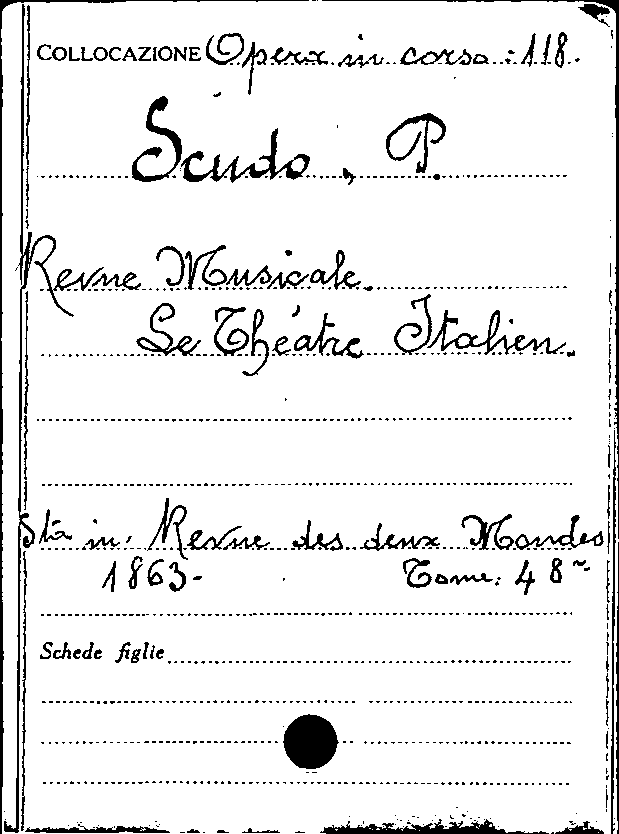 COLLOCAZIONE Opera in corso: 118.
Scudo, P.
Revue Musicale.
Le Théatre Italien.
Sta in: Revue des deux Mondes
1863- Tome: 48~
Schede figlie